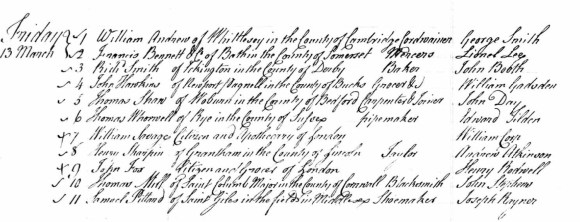 Friday 1 William Andrew of Whittlesey in the County of Cambridge Cordwainer George Smith
13 March 2 Francis Bennett &C of Bath in the County of Somerset Mercers Lionel Lee
3 Richd Smith of Ickington in the County of Derby Baker John Booth
4 John Hawkins of Newport Pagnell in the County of Bucks Grocer &c William Gadsden
5 Thomas Shaw of Woburn in the County of Bedford Carpenter & Joiner John Day
6 Thomas Whorwell of Rye in the County of Sussex pipemaker Edward Tilden
7 William George Citizen and Apothecary of London William
8 Henry Sharpin of Grantham in the County of Lincoln Taylor Andrew Atkinson
9 John Fox Citizen and Grocer of London Henry Rothwell
10 Thomas Mill of Saint Columb Major in the County of Cornwall Blacksmith John Stephens
11 Samuel Pilland of Saint Giles in the field in Middlesex Shoemaker Joseph Rayner